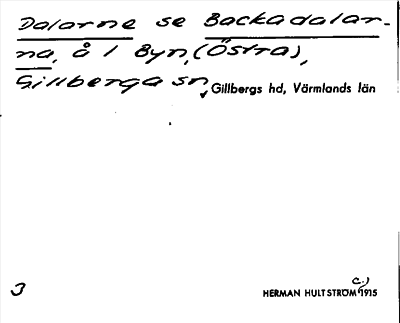 Dalarne se Backadalar-
na, å 1 Byn, (Östra),
Gillberga sn, Gillbergs hd, Värmlands län
3
HERMAN HULTSTRÖM c.) 1915